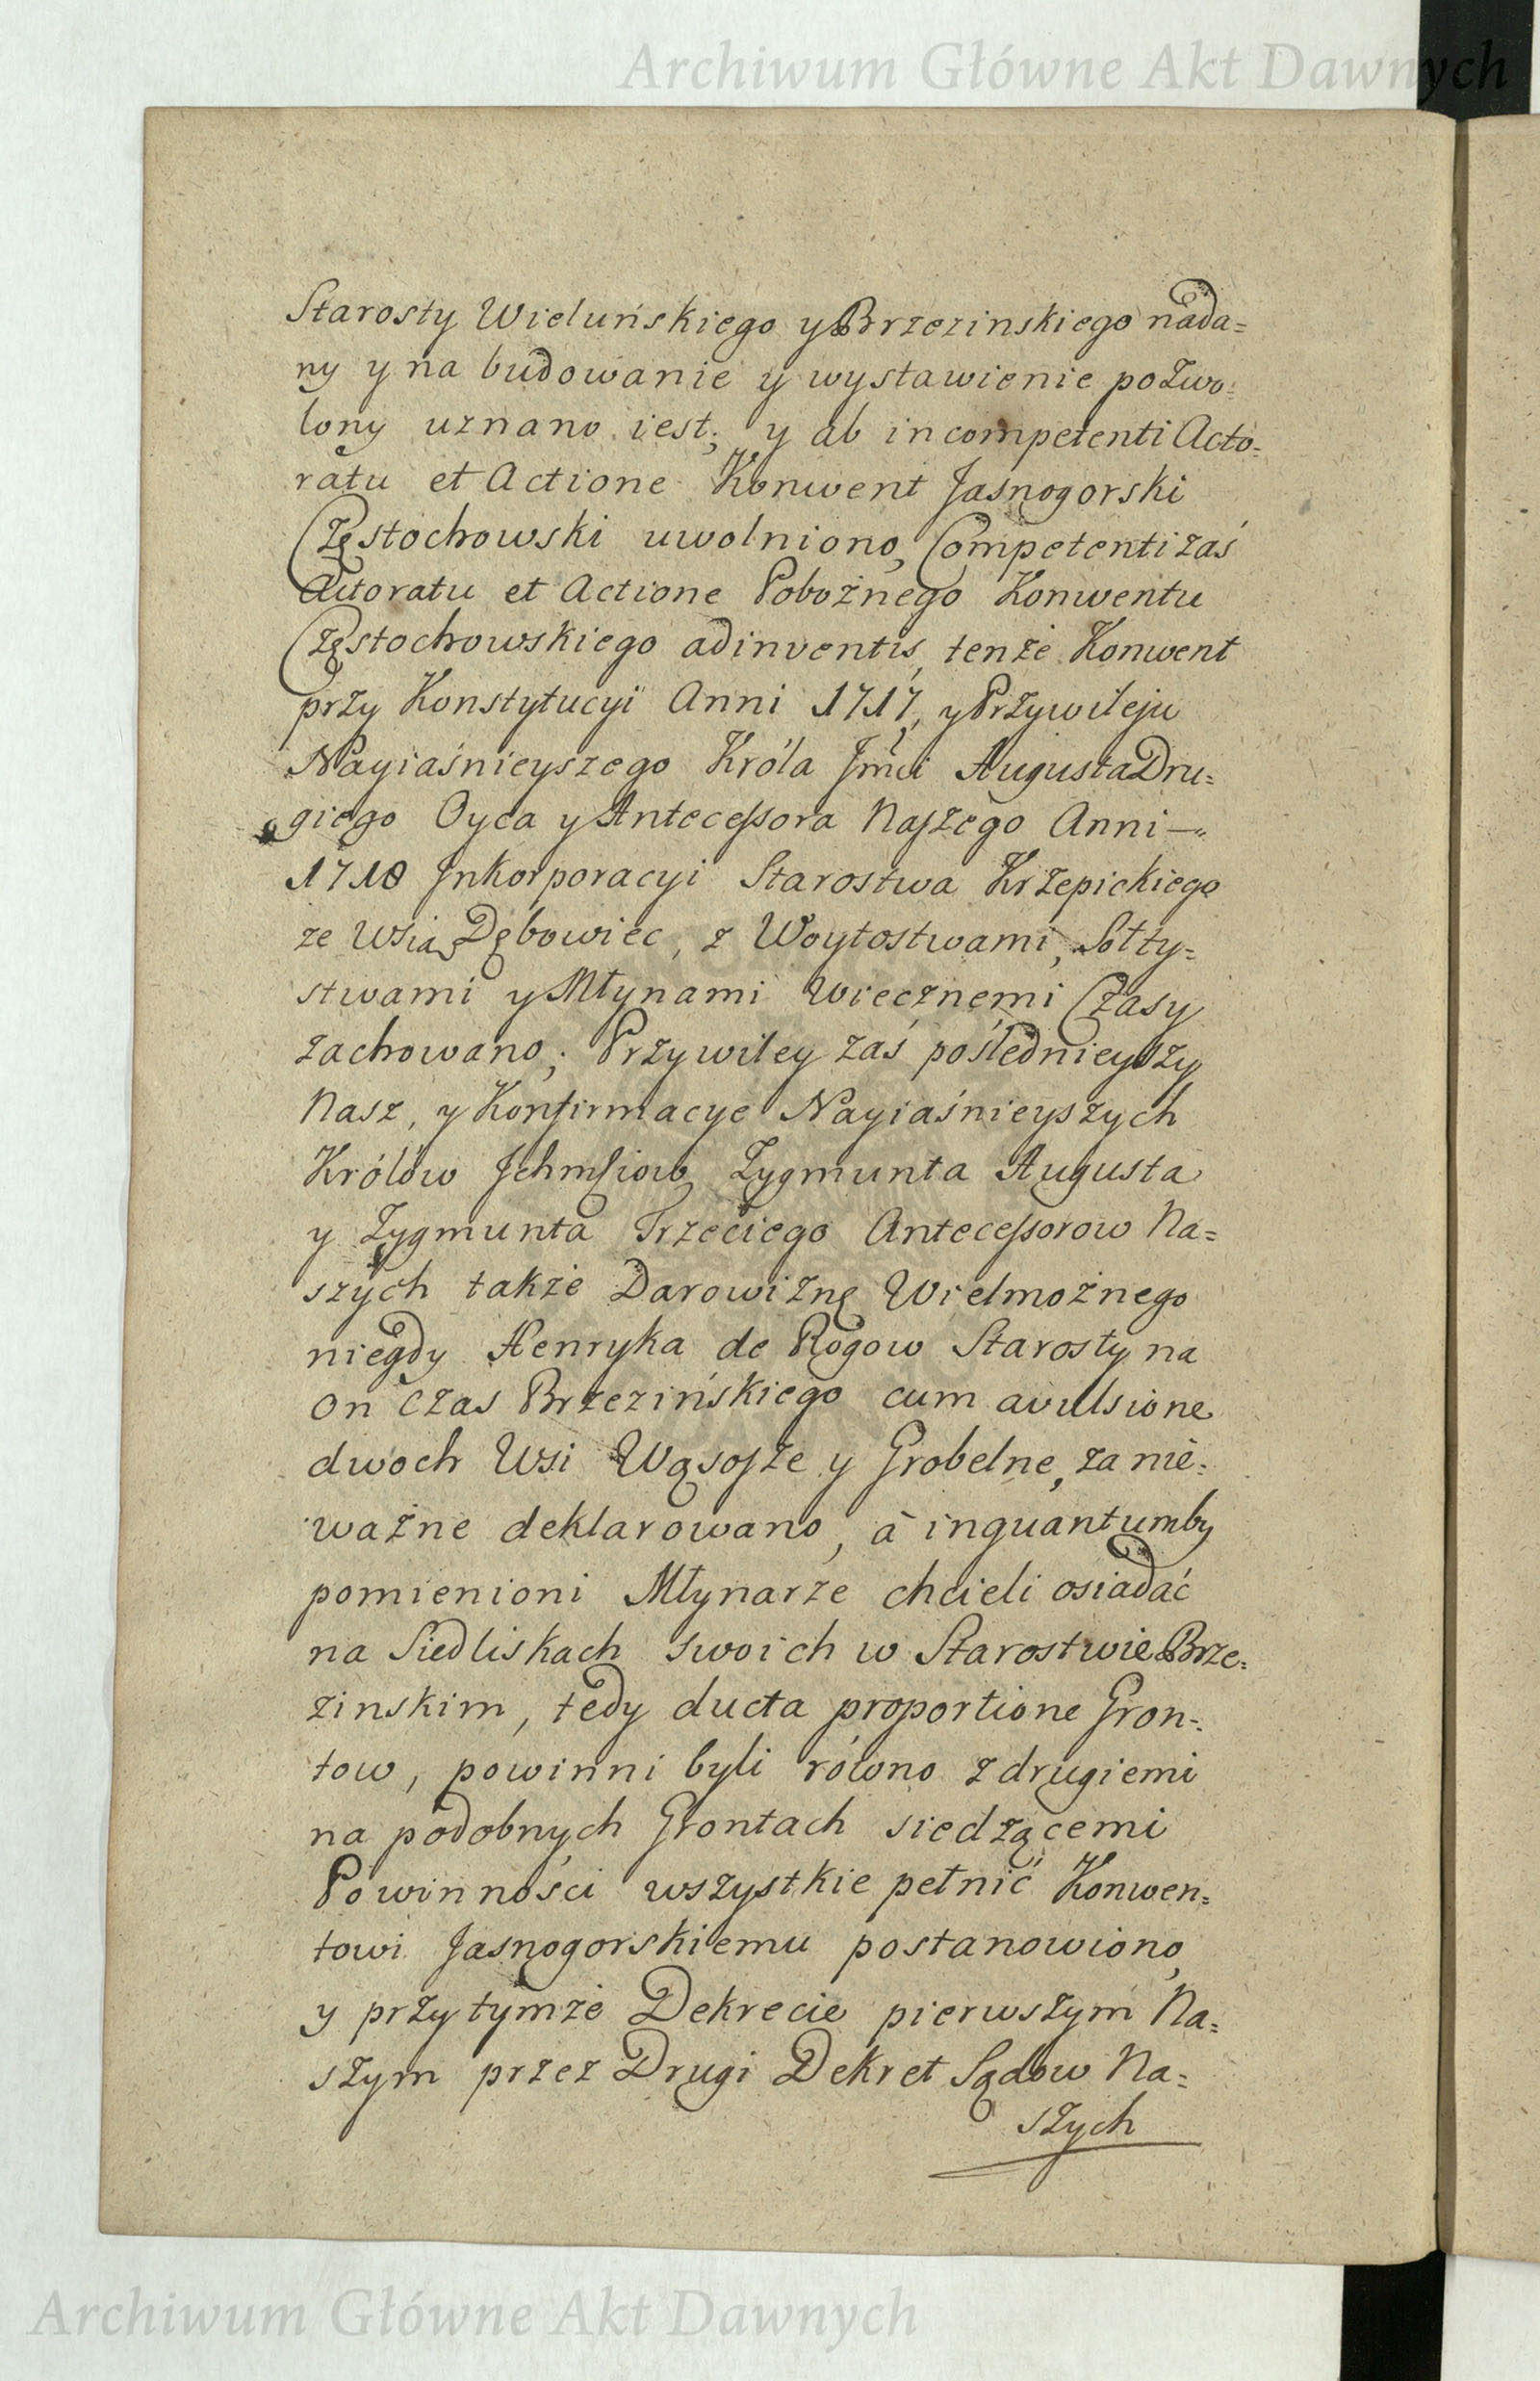 Archiwum Główne Akt Dawnych
Starosty Wieluńskiego y Brzezinskiego nada=
ny y na budowanie y wystawienie pozwo=
lony uznano iest; y ab incompetenti Acto=
ratu et Actione Konwent Jasnogorski
Częstochowski uwolniono, Competenti zaś
Actoratu et Actione Pobożnego Konwentu
Częstochowskiego adinventis, tenże Konwent
przy Konstytucyi Anni 1717, y Przywileju
Nayiaśnieyszego Króla Jmći Augusta Dru=
giego Oyca y Antecessora Naszego Anni —
1718 Inkorporacyi Starostwa Krzepickiego
ze Wsią Dębowiec, z Woytostwami, Sołty=
stwami y Młynami Wiecznemi Czasy
zachowano; Przywiley zaś poślednieyszy
Nasz, y Konfirmacye Nayiaśnieyszych
Królów Ichmsiow Zygmunta Augusta
y Zygmunta Trzeciego Antecessorow Na=
szych także Darowiznę Wielmożnego
niegdy Henryka de Rogow Starosty na
on czas Brzezińskiego cum avulsione
dwoch Wsi Wąsosze y Grobelne, za nie=
ważne deklarowano, à inquantumby
pomienioni Młynarze chcieli osiadać
na Siedliskach swoich w Starostwie Brze=
zinskim, tedy ducta proportione Gron=
tow, powinni byli równo z drugiemi
na podobnych Grontach siedzącemi
Powinności wszystkie pełnić Konwen=
towi Jasnogorskiemu postanowiono,
y przy tymże Dekrecie pierwszym Na=
szym przez Drugi Dekret Sądow Na=
szych
Archiwum Główne Akt Dawnych